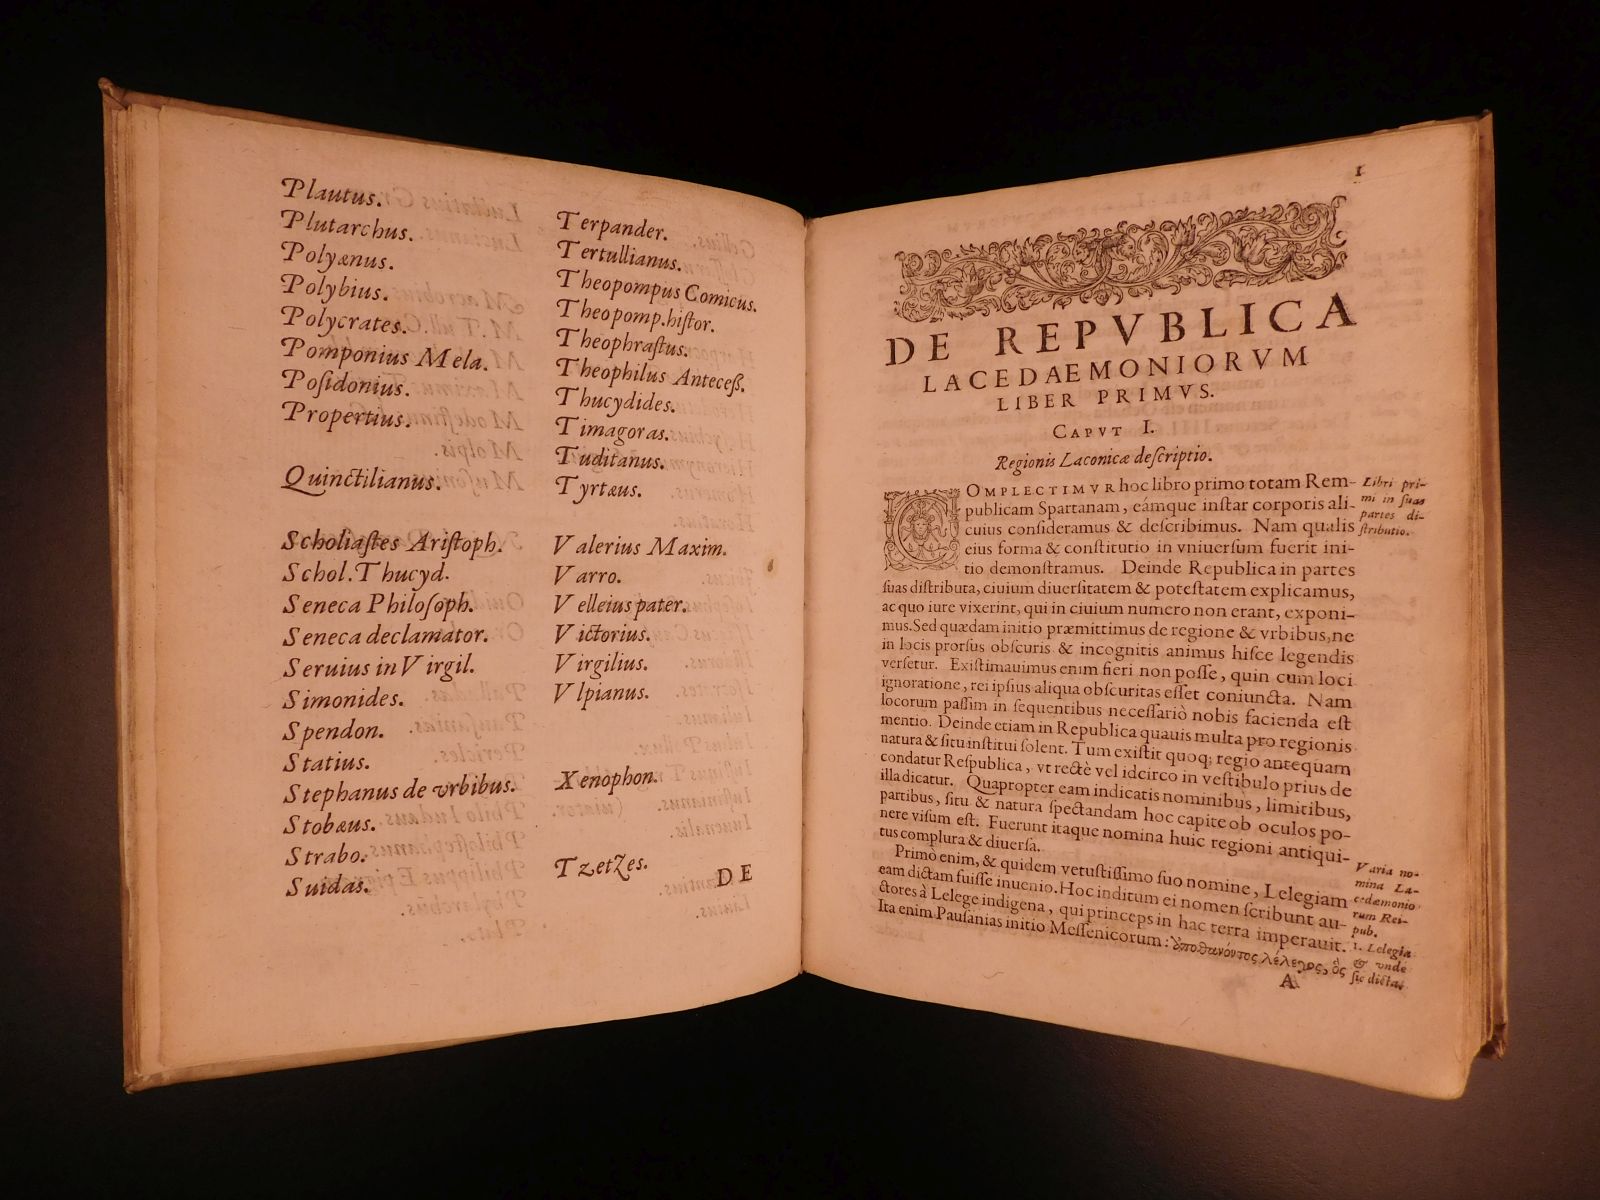 Plautus.
Plutarchus.
Polyænus.
Polybius.
Polycrates.
Pomponius Mela.
Poſidonius.
Propertius.
Quinctilianus.
Scholiaſtes Ariſtoph.
Schol. Thucyd.
Seneca Philoſoph.
Seneca declamator.
Seruius in Virgil.
Simonides.
Spendon.
Statius.
Stephanus de vrbibus.
Stobæus.
Strabo.
Suidas.
Terpander.
Tertullianus.
Theopompus Comicus.
Theopomp. hiſtor.
Theophraſtus.
Theophilus Anteceß.
Thucydides.
Timagoras.
Tuditanus.
Tyrtæus.
Valerius Maxim.
Varro.
Velleius pater.
Victorius.
Virgilius.
Vlpianus.
Xenophon.
Tzetzes.
DE
1
DE REPVBLICA
LACEDAEMONIORVM
LIBER PRIMVS.
CAPVT I.
Regionis Laconicæ deſcriptio.
COMPLECTIMVR hoc libro primo totam Rem-
publicam Spartanam, eámque inſtar corporis ali-
cuius conſideramus & deſcribimus. Nam qualis
eius forma & conſtitutio in vniuerſum fuerit ini-
tio demonſtramus. Deinde Republica in partes
ſuas diſtributa, ciuium diuerſitatem & poteſtatem explicamus,
ac quo iure vixerint, qui in ciuium numero non erant, exponi-
mus. Sed quædam initio præmittimus de regione & vrbibus, ne
in locis prorſus obſcuris & incognitis animus hiſce legendis
verſetur. Exiſtimauimus enim fieri non poſſe, quin cum loci
ignoratione, rei ipſius aliqua obſcuritas eſſet coniuncta. Nam
locorum paſſim in ſequentibus neceſſariò nobis facienda eſt
mentio. Deinde etiam in Republica quauis multa pro regionis
natura & ſitu inſtitui ſolent. Tum exiſtit quoq; regio antequam
condatur Reſpublica, vt rectè vel idcirco in veſtibulo prius de
illa dicatur. Quapropter eam indicatis nominibus, limitibus,
partibus, ſitu & natura ſpectandam hoc capite ob oculos po-
nere viſum eſt. Fuerunt itaque nomina huic regioni antiqui-
tus complura & diuerſa.
Primò enim, & quidem vetuſtiſſimo ſuo nomine, Lelegiam
eam dictam fuiſſe inuenio. Hoc inditum ei nomen ſcribunt au-
ctores à Lelege indigena, qui princeps in hac terra imperauit.
Ita enim Pauſanias initio Meſſenicorum: ὑποθανόντος λέλεγος, ὃς
A
Libri pri-
mi in ſuas
partes di-
ſtributio.
Varia no-
mina La-
cedæmonio
rum Rei-
pub.
1. Lelegia
& vnde
ſic dicta.